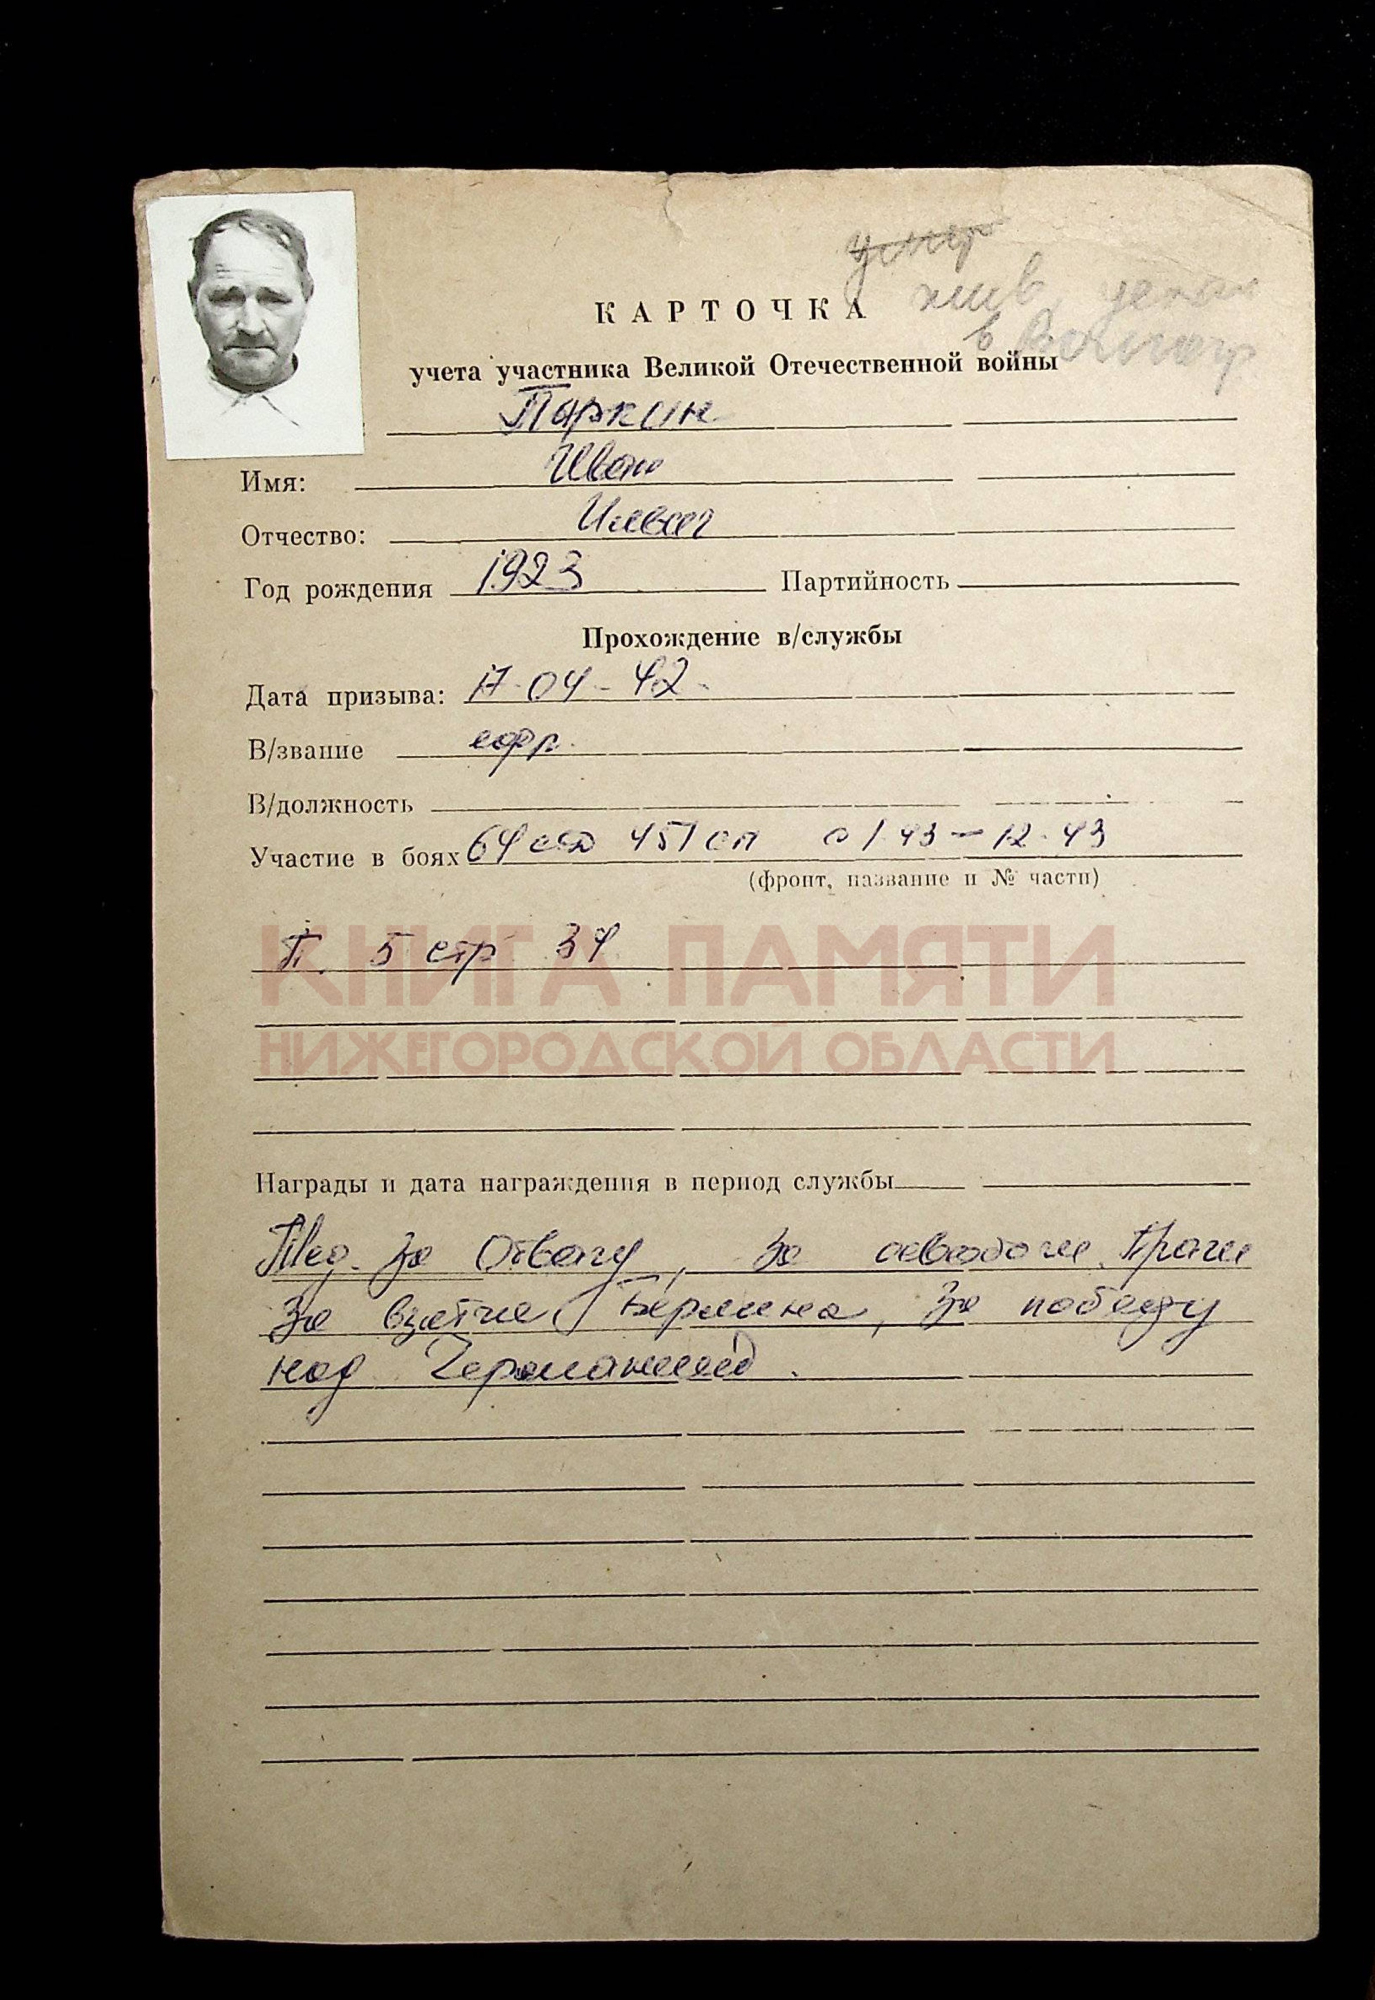 умер
жив, уехал
в Волгогр
КАРТОЧКА
учета участника Великой Отечественной войны
Паркин
Имя: Иван
Отчество: Ильич
Год рождения 1923 Партийность
Прохождение в/службы
Дата призыва: 17-04-42
В/звание ефр.
В/должность
Участие в боях 64 451 сп с 1.43 - 12.43
(фронт, название и № части)
П. 5 стр 34
КНИГА ПАМЯТИ
НИЖЕГОРОДСКОЙ ОБЛАСТИ
Награды и дата награждения в период службы
Мед. За Отвагу, За Праги
За взятие Берлина, За победу
над Германией.